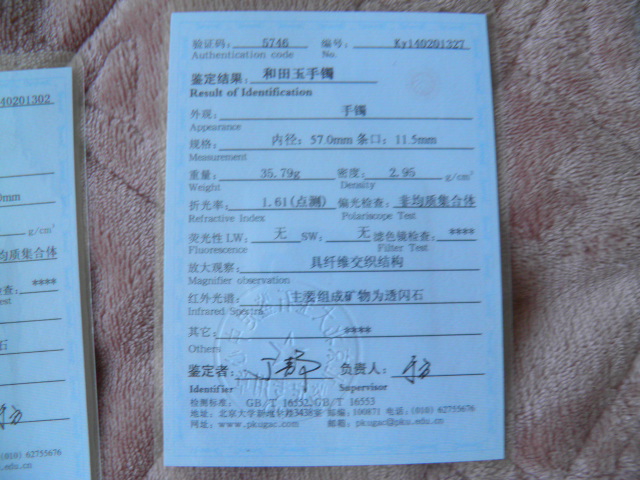 验证码: 5746 编号: Ky140201327
Authentication code No.
鉴定结果: 和田玉手镯
Result of Identification
外观: 手镯
Appearance
规格: 内径: 57.0mm 条口: 11.5mm
Measurement
重量: 35.79g 密度: 2.95 g/cm³
Weight Density
折光率: 1.61(点测) 偏光检查: 非均质集合体
Refractive Index Polariscope Test
荧光性 LW: 无 SW: 无 滤色镜检查: ****
Fluorescence Filter Test
放大观察: 具纤维交织结构
Magnifier observation
红外光谱: 主要组成矿物为透闪石
Infrared Spectra
其它: ****
Others
鉴定者: 丁静 负责人:
Identifier Supervisor
检测标准: GB/T 16552, GB/T 16553
地址: 北京大学新地学楼3438室 邮编: 100871 电话: (010) 62755676
网址: www.pkugac.com 邮箱: pkugac@pku.edu.cn
40201302
0mm
g/cm³
均质集合体
查: ****
est
石
10) 62755676
u.edu.cn